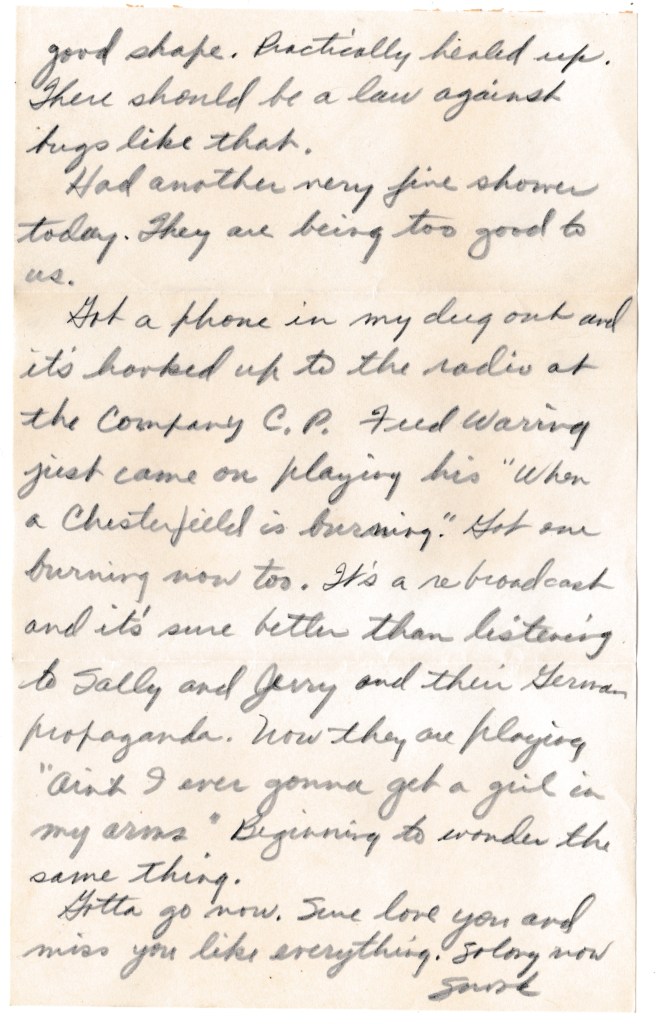 good shape. Practically healed up.
There should be a law against
bugs like that.
Had another very fine shower
today. They are being too good to
us.
Got a phone in my dug out and
it's hooked up to the radio at
the Company C.P. Fred Waring
just came on playing his "When
a Chesterfield is burning." Got one
burning now too. It's a rebroadcast
and it's sure better than listening
to Sally and Jerry and their German
propaganda. Now they are playing
"Aint I ever gonna get a girl in
my arms" Beginning to wonder the
same thing.
Gotta go now. Sure love you and
miss you like everything. So long now